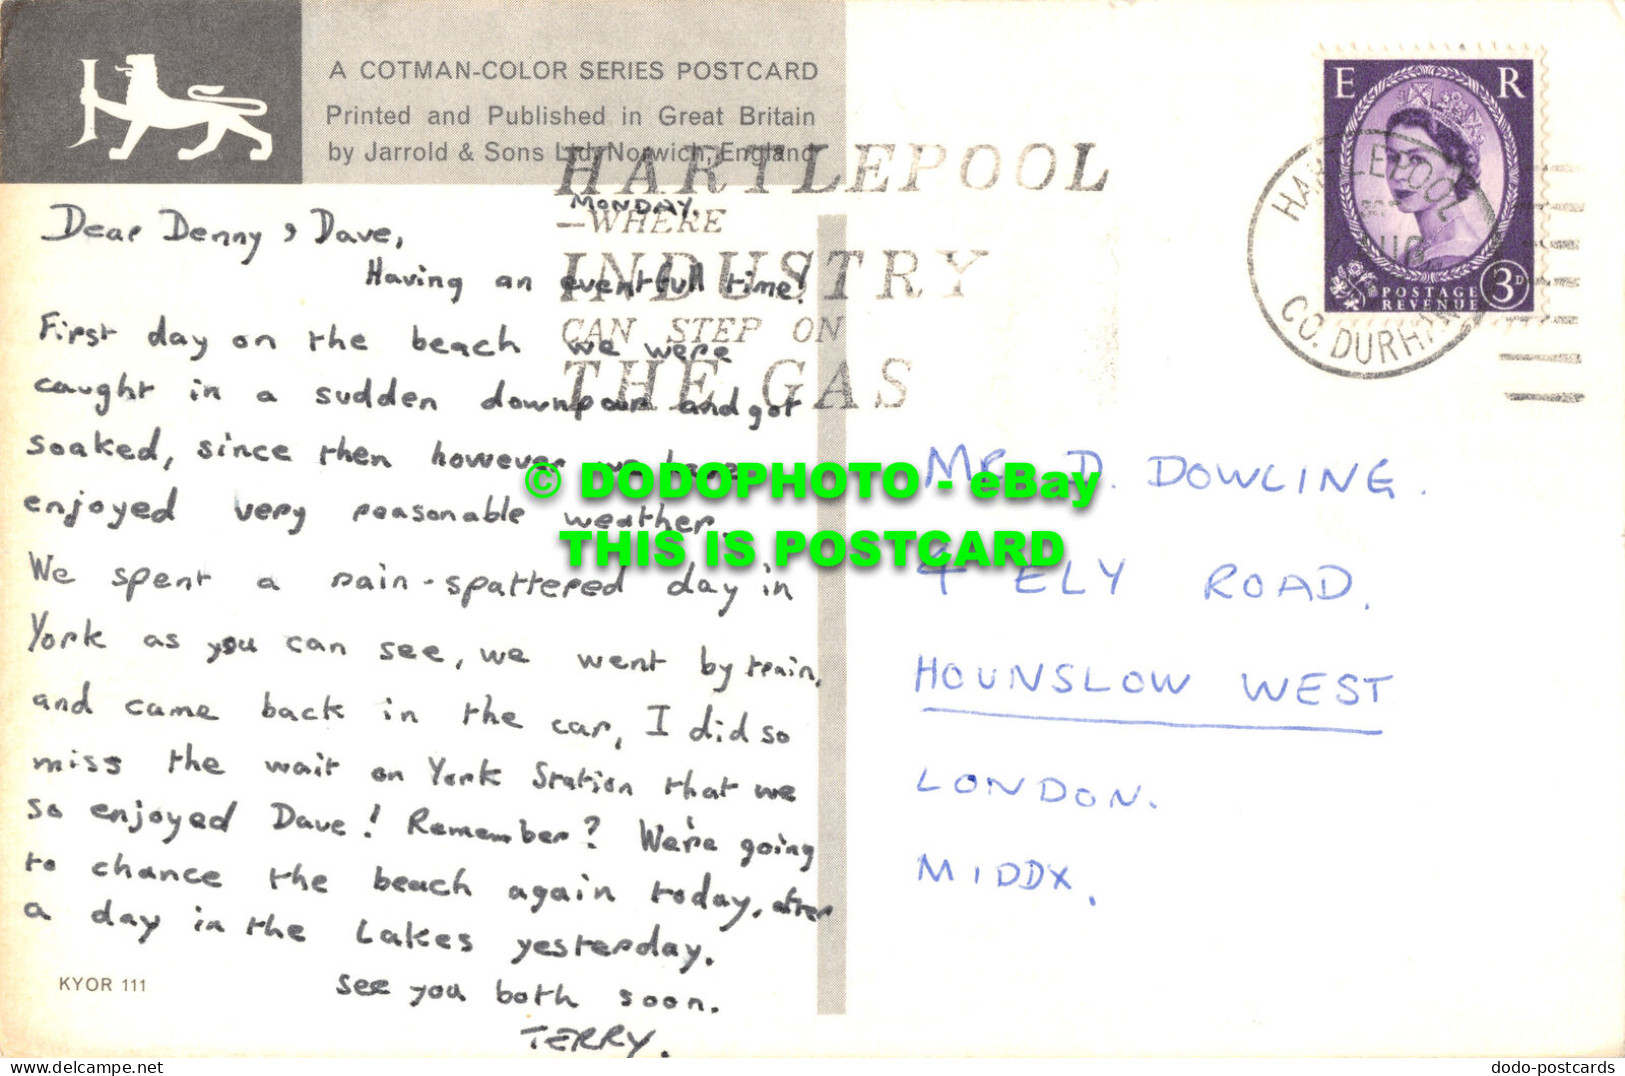 A COTMAN-COLOR SERIES POSTCARD
Printed and Published in Great Britain
by Jarrold & Sons Ltd, Norwich, England
HARTLEPOOL
—WHERE
INDUSTRY
CAN STEP ON
THE GAS
E R
POSTAGE
REVENUE
3D
HARTLEPOOL
CO. DURHAM
MONDAY.
Dear Denny & Dave,
Having an eventfull time!
First day on the beach we were
caught in a sudden downpour and got
soaked, since then however we have
enjoyed very reasonable weather.
We spent a rain-spattered day in
York as you can see, we went by train,
and came back in the car, I did so
miss the wait on York Station that we
so enjoyed Dave! Remember? We're going
to chance the beach again today, after
a day in the Lakes yesterday.
See you both soon.
TERRY.
KYOR 111
MR D. DOWLING.
4 ELY ROAD.
HOUNSLOW WEST
LONDON.
MIDDX.
© DODOPHOTO - eBay
THIS IS POSTCARD
dodo-postcards